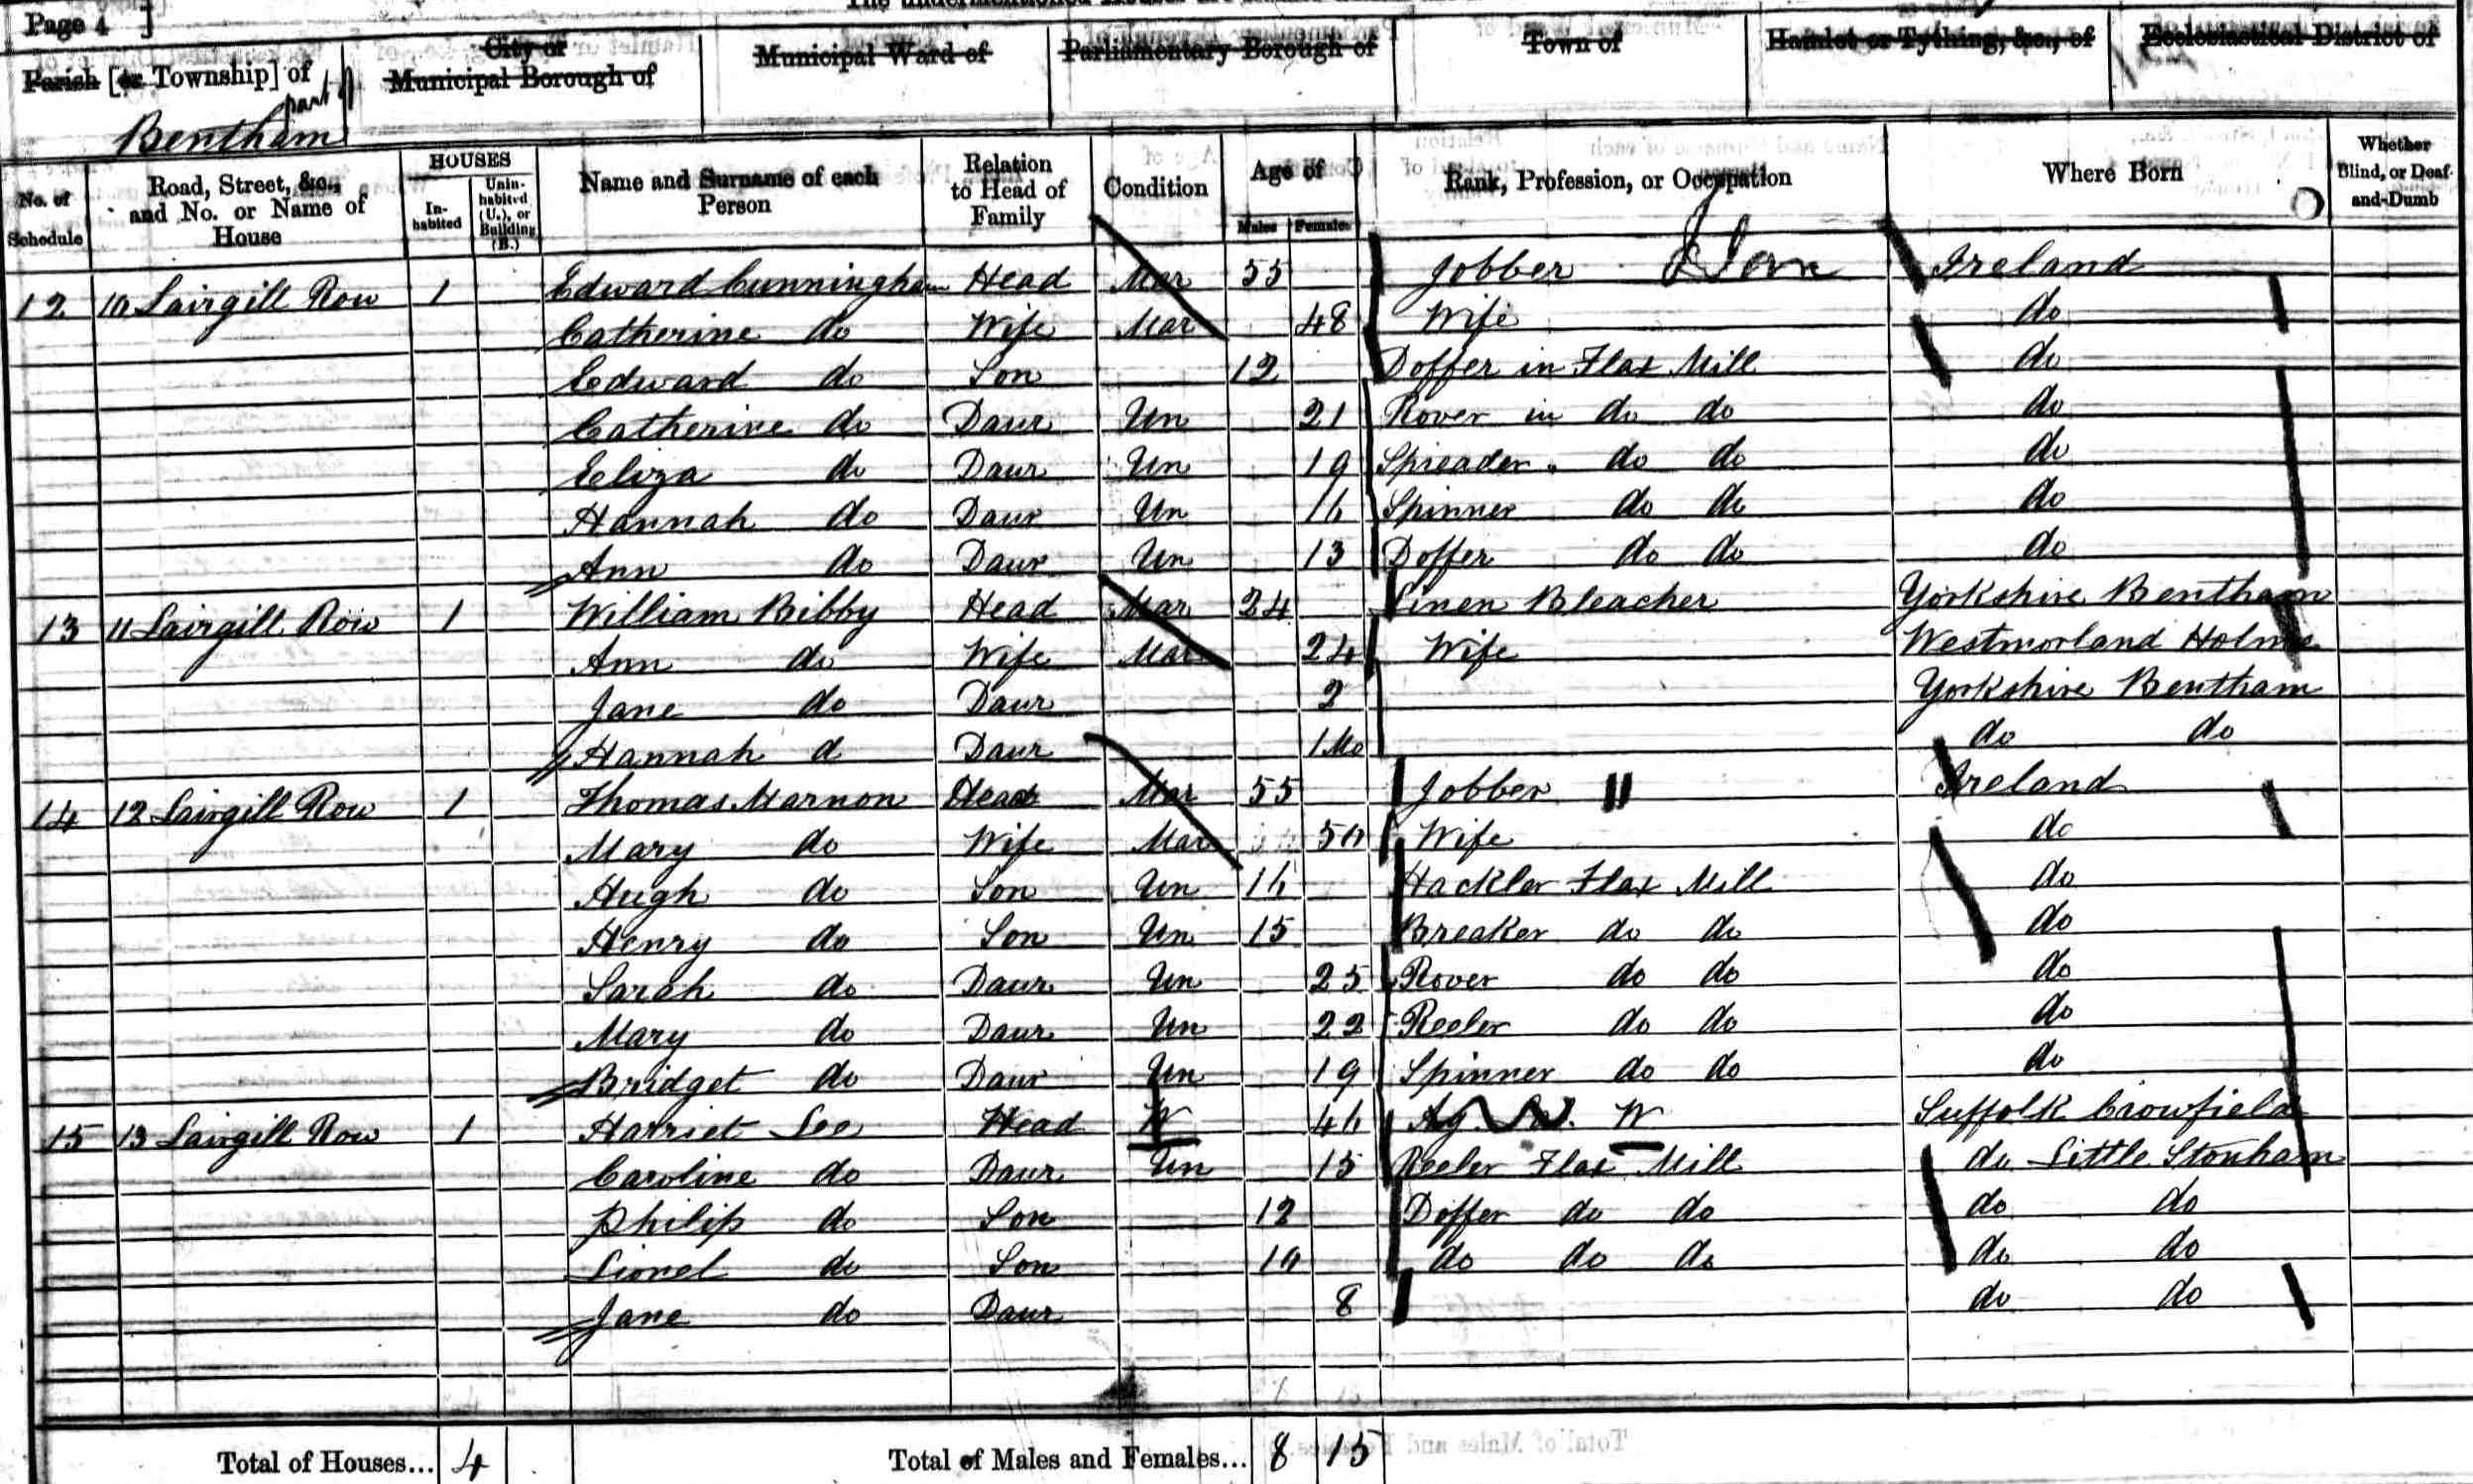 Page 4 ]
Parish [or Township] of
part of
Bentham
City or
Municipal Borough of
Municipal Ward of
Parliamentary Borough of
Town of
Hamlet or Tything, &c., of
Ecclesiastical District of
No. of Schedule
Road, Street, &c., and No. or Name of House
HOUSES
Inhabited
Uninhabited (U.), or Building (B.)
Name and Surname of each Person
Relation to Head of Family
Condition
Age of
Males
Females
Rank, Profession, or Occupation
Where Born
Whether Blind, or Deaf-and-Dumb
12 10 Lairgill Row 1 Edward Cunningham Head Mar 55 Jobber Ireland
Catherine do Wife Mar 48 Wife do
Edward do Son 12 Doffer in Flax Mill do
Catherine do Daur Un 21 Rover in do do do
Eliza do Daur Un 19 Spreader do do do
Hannah do Daur Un 16 Spinner do do do
Ann do Daur Un 13 Doffer do do do
13 11 Lairgill Row 1 William Bibby Head Mar 24 Linen Bleacher Yorkshire Bentham
Ann do Wife Mar 24 Wife Westmorland Holme
Jane do Daur 2 Yorkshire Bentham
Hannah d Daur 1 Mo do do
14 12 Lairgill Row 1 Thomas Marnon Head Mar 55 Jobber Ireland
Mary do Wife Mar 50 Wife do
Hugh do Son Un 16 Hackler Flax Mill do
Henry do Son Un 15 Breaker do do do
Sarah do Daur Un 25 Rover do do do
Mary do Daur Un 22 Reeler do do do
Bridget do Daur Un 19 Spinner do do do
15 13 Lairgill Row 1 Harriet Lee Head W 46 Ag. W Suffolk Crowfield
Caroline do Daur Un 15 Reeler Flax Mill do Little Stonham
Philip do Son 12 Doffer do do do do
Lionel do Son 10 do do do do do
Jane do Daur 8 do do
Total of Houses... 4
Total of Males and Females... 8 15